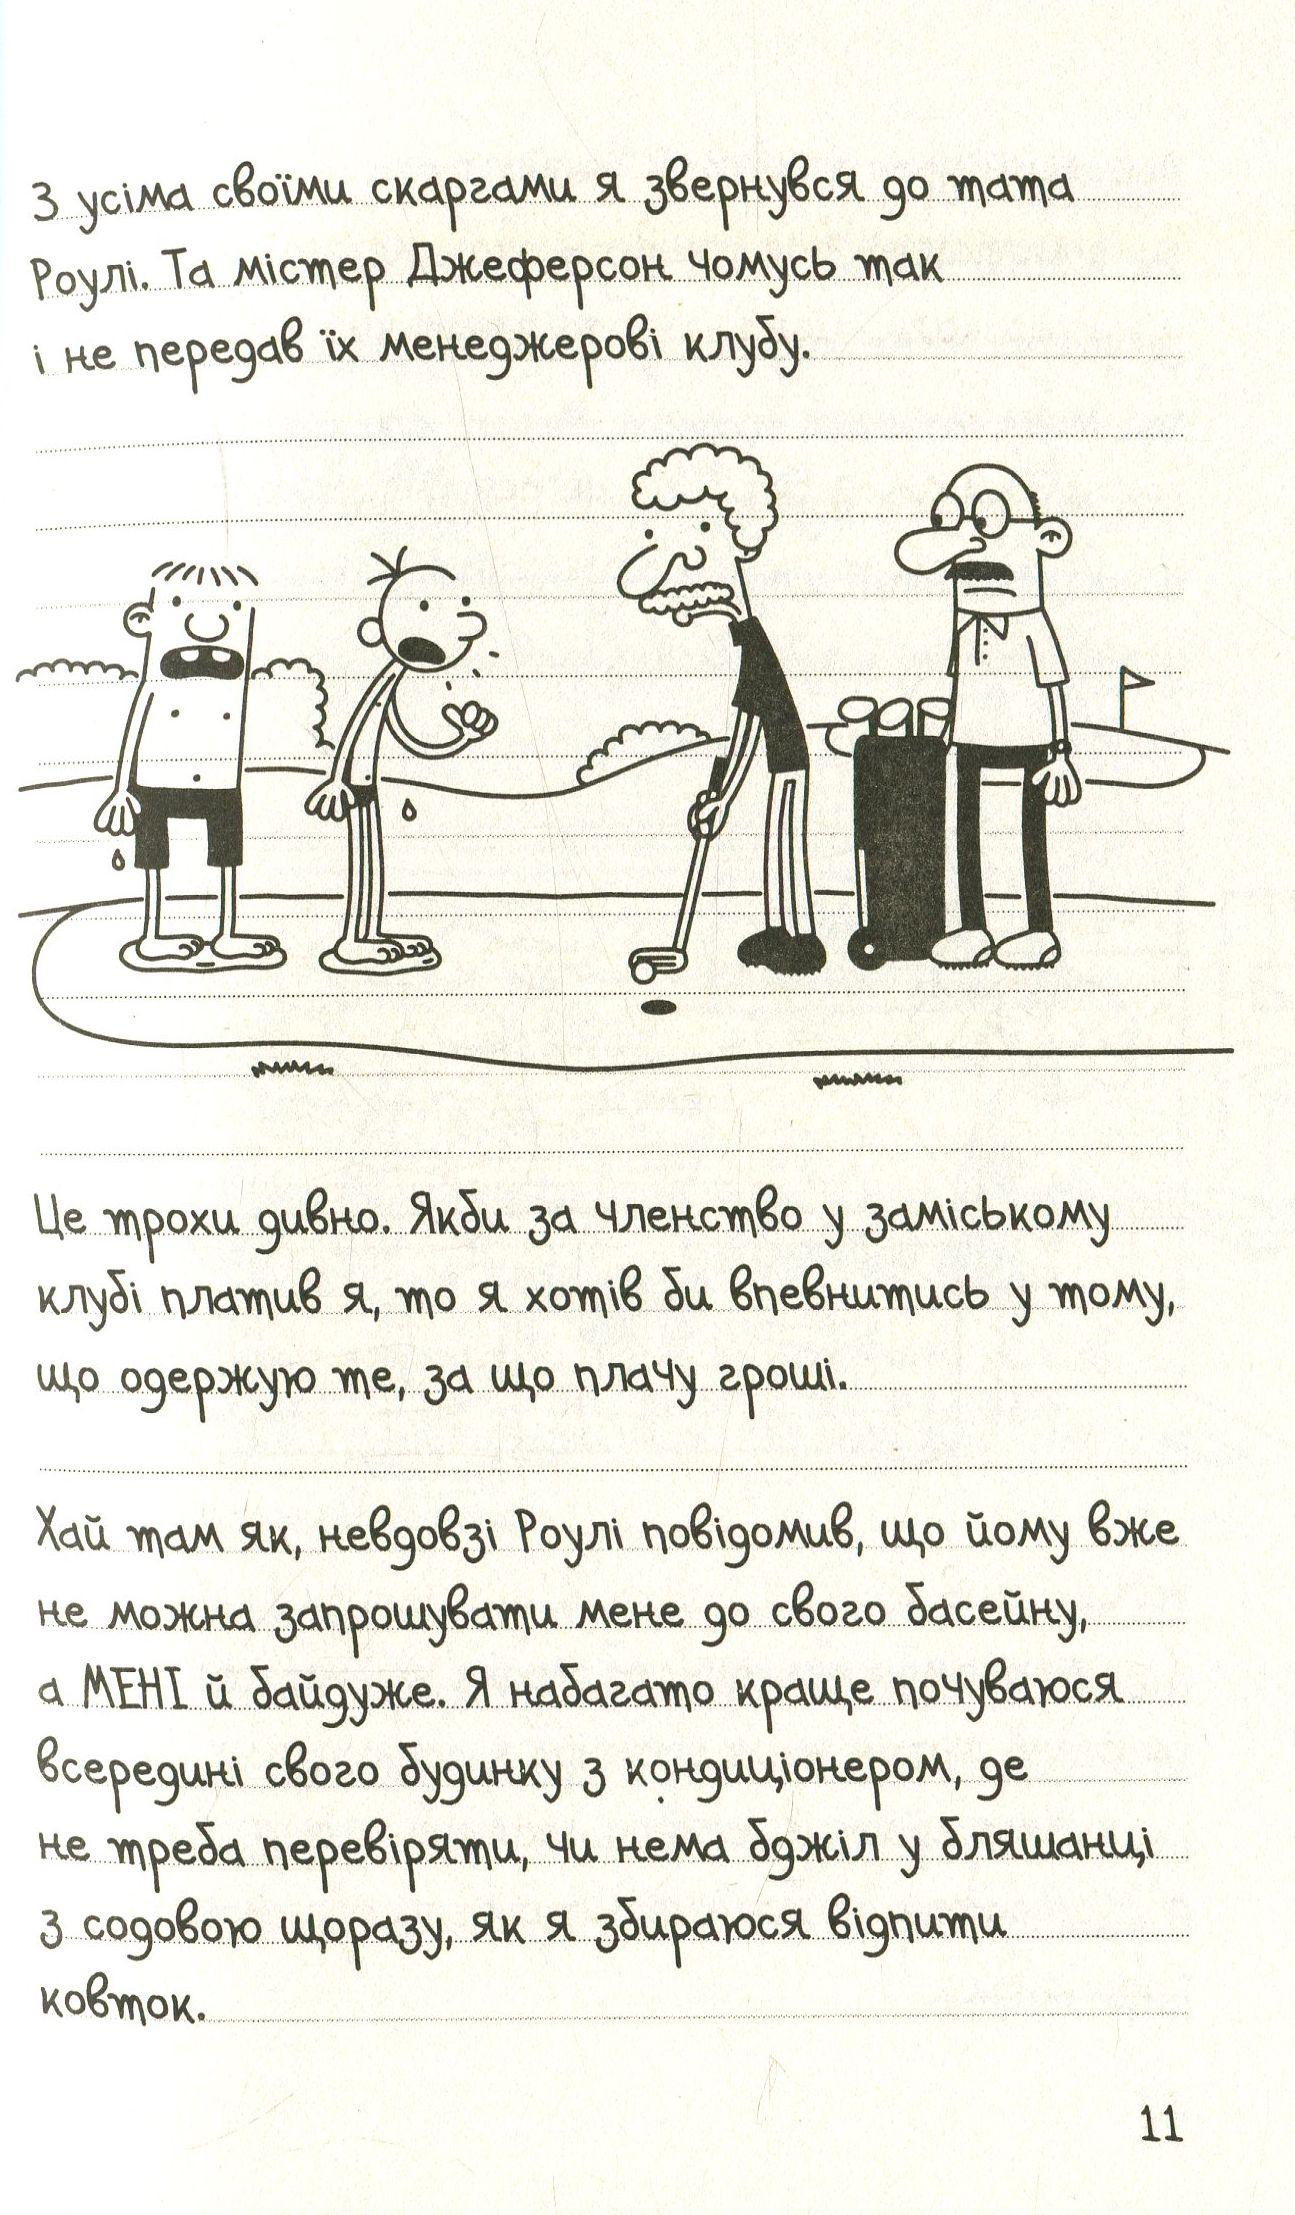 З усіма своїми скаргами я звернувся до тата
Роулі. Та містер Джеферсон чомусь так
і не передав їх менеджерові клубу.
Це трохи дивно. Якби за членство у заміському
клубі платив я, то я хотів би впевнитись у тому,
що одержую те, за що плачу гроші.
Хай там як, невдовзі Роулі повідомив, що йому вже
не можна запрошувати мене до свого басейну,
а МЕНІ й байдуже. Я набагато краще почуваюся
всередині свого будинку з кондиціонером, де
не треба перевіряти, чи нема бджіл у бляшанці
з содовою щоразу, як я збираюся відпити
ковток.
11